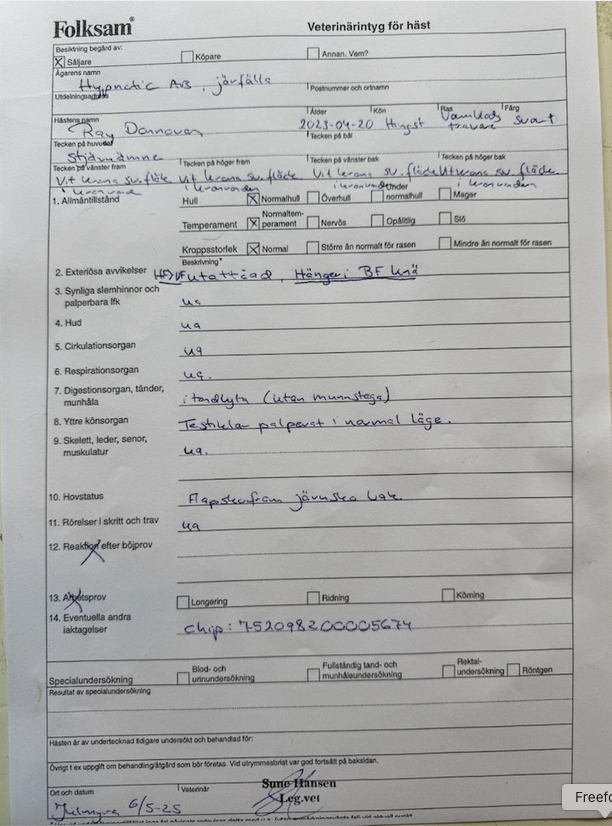 Folksam®
Veterinärintyg för häst
Besiktning begärd av:
Säljare Köpare Annan. Vem?
Ägarens namn
Hypnotic AB, järfälla
Utdelningsadress Postnummer och ortnamn
Hästens namn Ålder Kön Ras Färg
Ray Donnovan 2023-04-20 Hingst Varmblods travare svart
Tecken på huvudet Tecken på bål
Stjärnämne
Tecken på vänster fram Tecken på höger fram Tecken på vänster bak Tecken på höger bak
Vit krans sv. fläck Vit krans sv. fläck Vit krans sv. fläck Vit krans sv. fläck.
i kronranden i kronranden i kronranden i kronranden
1. Allmäntillstånd Hull Normalhull Överhull Under normalhull Mager
Temperament Normaltemperament Nervös Opålitlig Slö
Kroppsstorlek Normal Större än normalt för rasen Mindre än normalt för rasen
Beskrivning*
2. Exteriösa avvikelser HF>VF utåttåad, Hänger i BF knä
3. Synliga slemhinnor och
palperbara lfk ua
4. Hud ua
5. Cirkulationsorgan ua
6. Respirationsorgan ua.
7. Digestionsorgan, tänder,
munhåla i tandbyte (utan munstege)
8. Yttre könsorgan Testiklar palperat i normal läge.
9. Skelett, leder, senor,
muskulatur ua.
10. Hovstatus Flapskor fram järnsko bak
11. Rörelser i skritt och trav ua
12. Reaktion efter böjprov
13. Arbetsprov Longering Ridning Körning
14. Eventuella andra
iakttagelser Chip: 752098200005674
Specialundersökning Blod- och urinundersökning Fullständig tand- och munhåleundersökning Rektalundersökning Röntgen
Resultat av specialundersökning
Hästen är av undertecknad tidigare undersökt och behandlad för:
Övrigt t ex uppgift om behandling/åtgärd som bör företas. Vid utrymmesbrist var god fortsätt på baksidan.
Ort och datum Veterinär
6/5-25 Sune Hansen
Leg.vet
Freefo